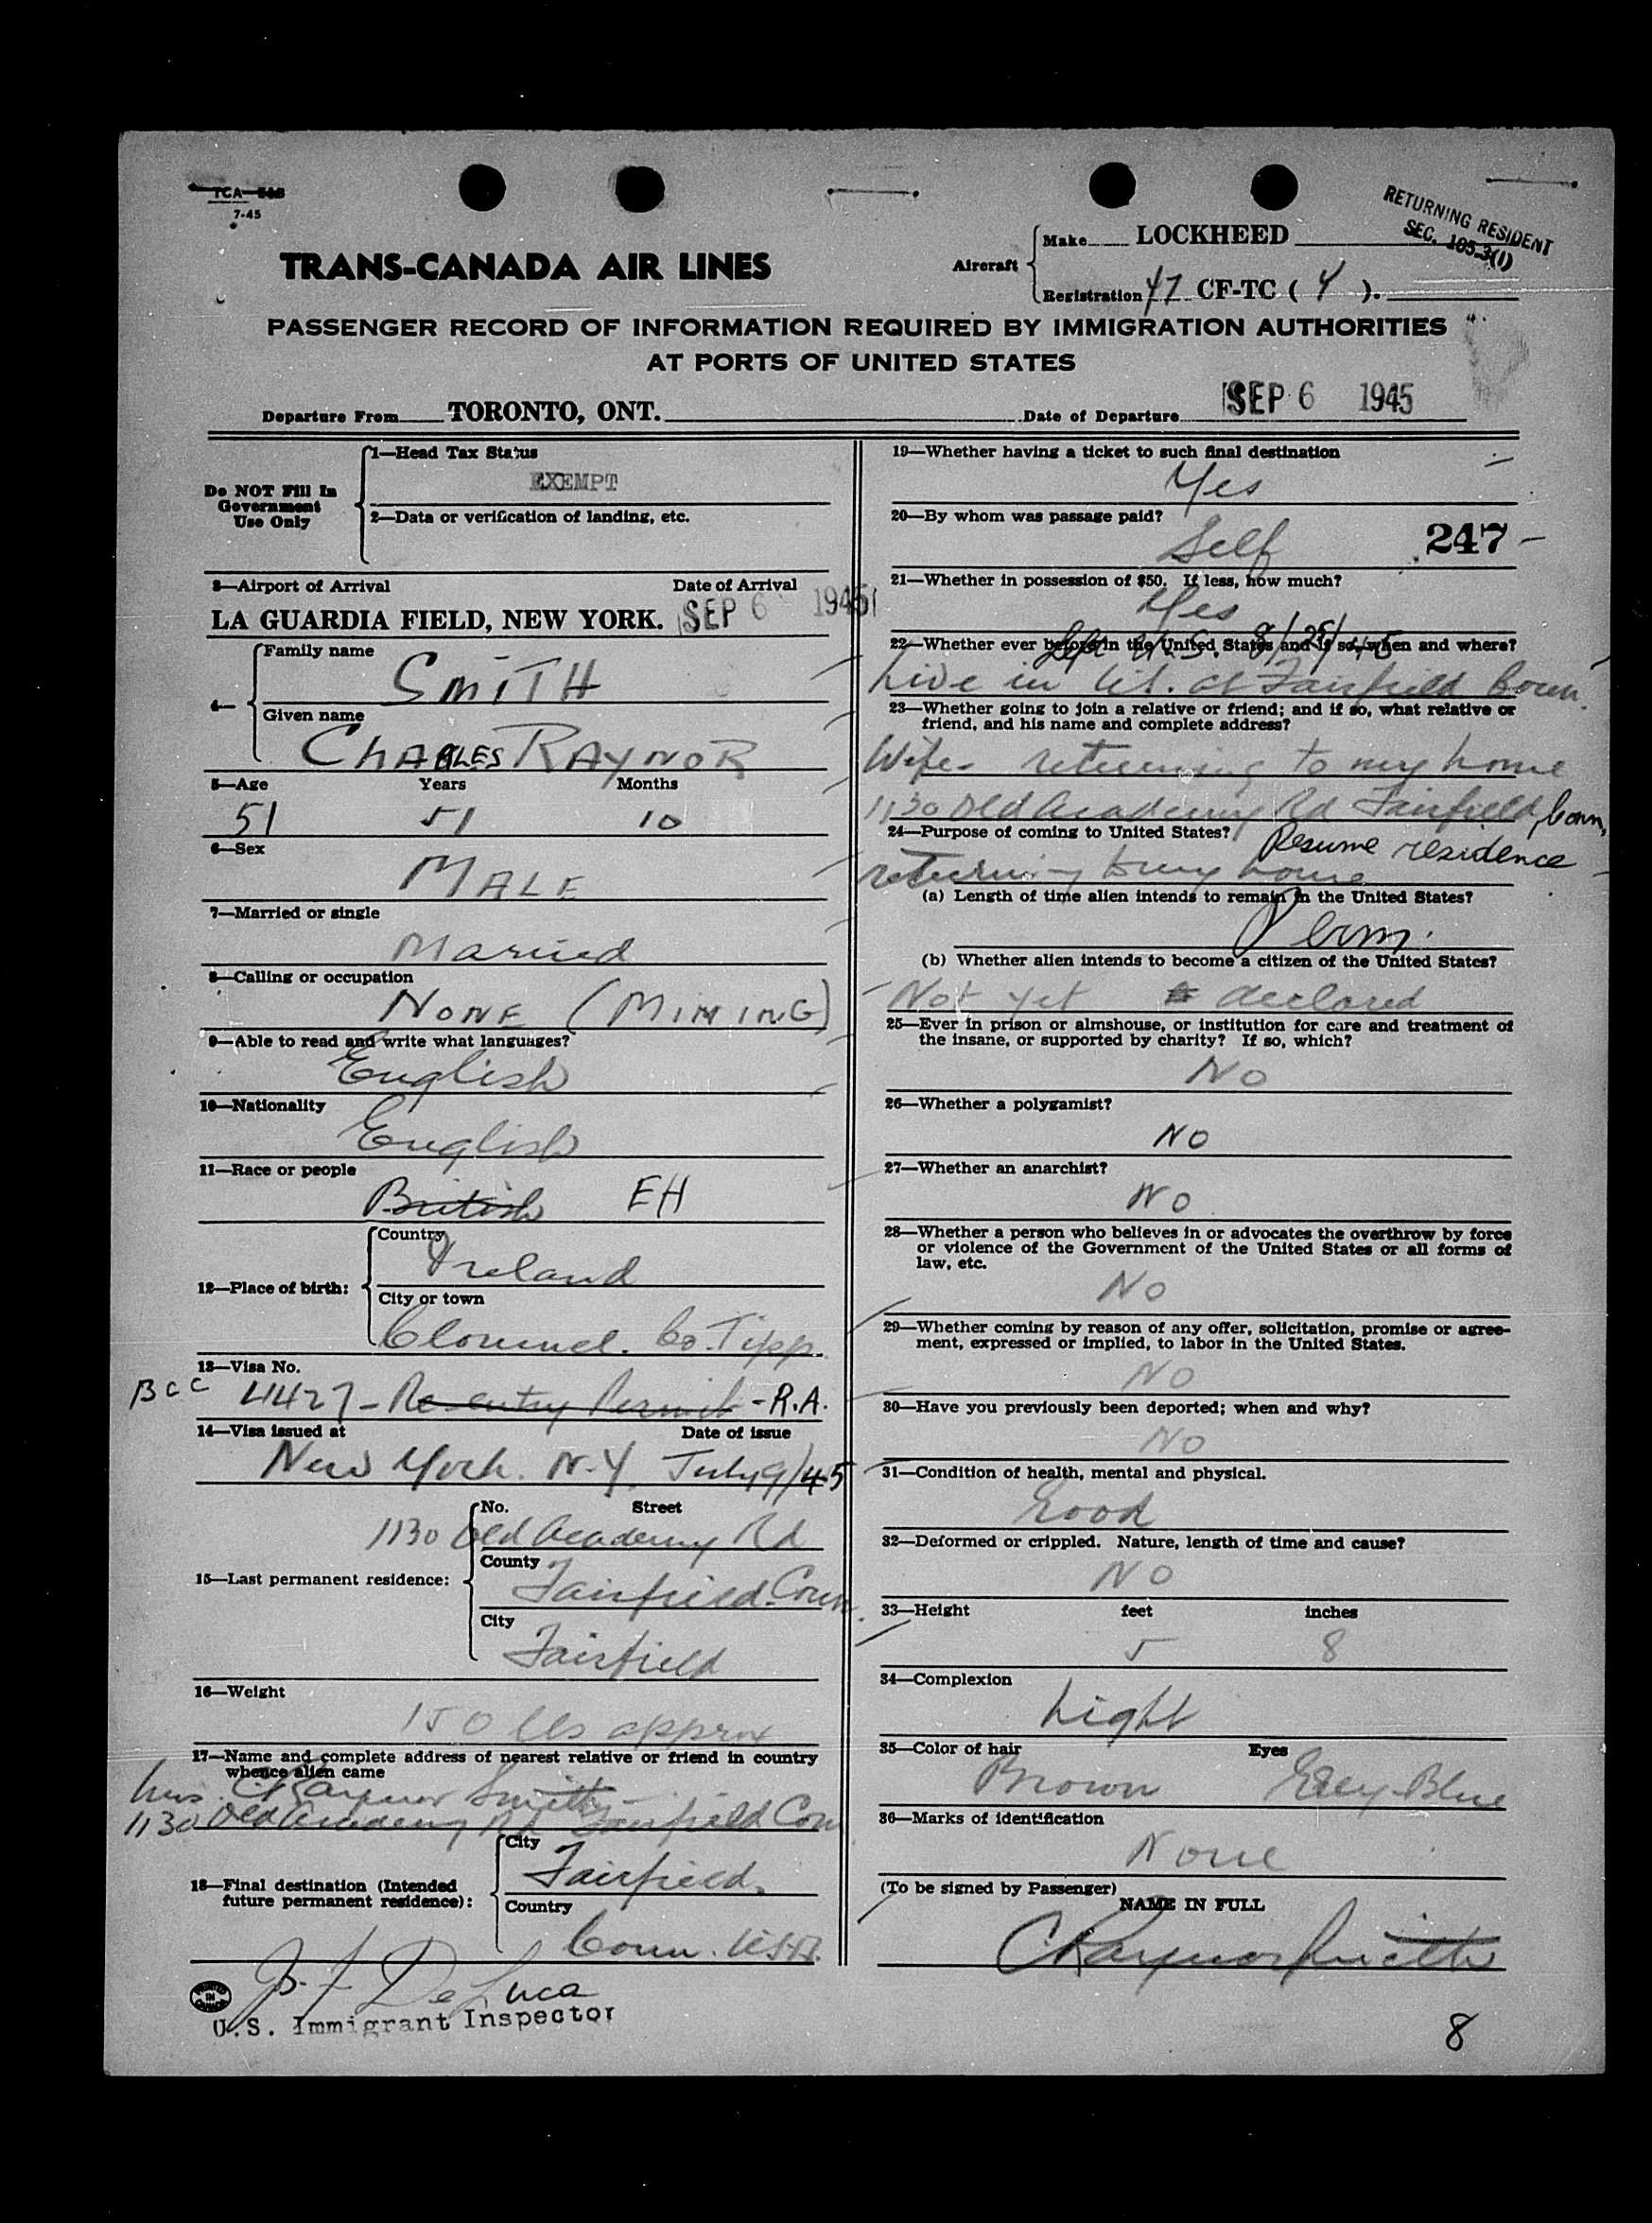 TCA
7-45
RETURNING RESIDENT
SEC. 105.3(1)
TRANS-CANADA AIR LINES
Aircraft
Make LOCKHEED
Registration 47 CF-TC ( Y ).
PASSENGER RECORD OF INFORMATION REQUIRED BY IMMIGRATION AUTHORITIES
AT PORTS OF UNITED STATES
Departure From TORONTO, ONT. Date of Departure SEP 6 1945
Do NOT Fill In
Government
Use Only
1—Head Tax Status
EXEMPT
2—Data or verification of landing, etc.
3—Airport of Arrival Date of Arrival
LA GUARDIA FIELD, NEW YORK. SEP 6 1945
4—
Family name
SMITH
Given name
CHARLES RAYNOR
5—Age Years Months
51 51 10
6—Sex
MALE
7—Married or single
Married
8—Calling or occupation
NONE (MINING)
9—Able to read and write what languages?
English
10—Nationality
English
11—Race or people
British EH
12—Place of birth:
Country
Ireland
City or town
Clonmel. Co. Tipp.
13—Visa No.
BCC 4427 - Re-entry Permit - R.A.
14—Visa issued at Date of issue
New York. N.Y. July 9/45
15—Last permanent residence:
No. Street
1130 Old Academy Rd
County
Fairfield. Conn.
City
Fairfield
16—Weight
150 lbs approx
17—Name and complete address of nearest relative or friend in country
whence alien came
Mrs. C. Raynor Smith -
1130 Old Academy Rd Fairfield Conn
18—Final destination (Intended
future permanent residence):
City
Fairfield.
Country
Conn. U.S.A.
PRINTED
IN
CANADA
J. F. De Luca
U.S. Immigrant Inspector
19—Whether having a ticket to such final destination
Yes
20—By whom was passage paid?
Self 247 -
21—Whether in possession of $50. If less, how much?
Yes
22—Whether ever before in the United States and if so, when and where?
Left U.S. 8/25/45
Live in U.S. at Fairfield Conn.
23—Whether going to join a relative or friend; and if so, what relative or
friend, and his name and complete address?
Wife - returning to my home
1130 Old Academy Rd Fairfield, Conn.
24—Purpose of coming to United States? Resume residence
returning to my home
(a) Length of time alien intends to remain in the United States?
Perm.
(b) Whether alien intends to become a citizen of the United States?
Not yet declared
25—Ever in prison or almshouse, or institution for care and treatment of
the insane, or supported by charity? If so, which?
No
26—Whether a polygamist?
NO
27—Whether an anarchist?
NO
28—Whether a person who believes in or advocates the overthrow by force
or violence of the Government of the United States or all forms of
law, etc.
NO
29—Whether coming by reason of any offer, solicitation, promise or agree-
ment, expressed or implied, to labor in the United States.
NO
30—Have you previously been deported; when and why?
NO
31—Condition of health, mental and physical.
Good
32—Deformed or crippled. Nature, length of time and cause?
NO
33—Height feet inches
5 8
34—Complexion
Light
35—Color of hair Eyes
Brown Grey-Blue
36—Marks of identification
None
(To be signed by Passenger)
NAME IN FULL
C Raynor Smith
8